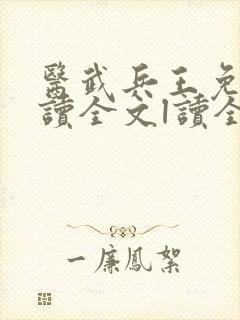 醫武兵王免
讀全文|讀全
一廉鳳絮